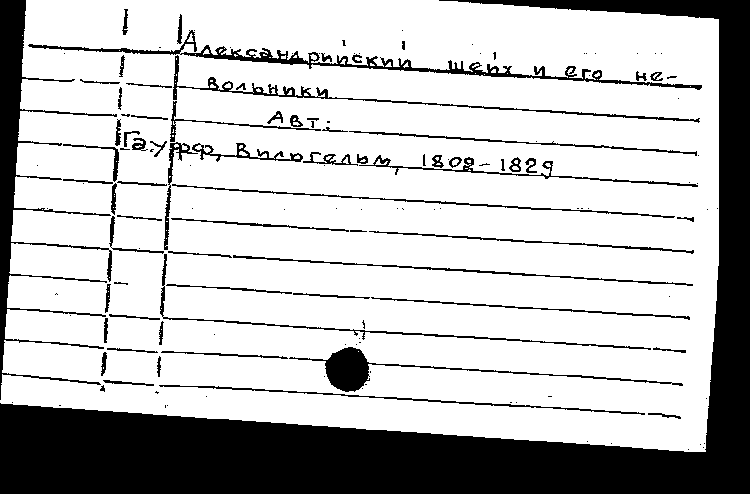 Александрийский шейх и его не-
вольники
Авт:
Гауфф, Вильгельм, 1802-1829